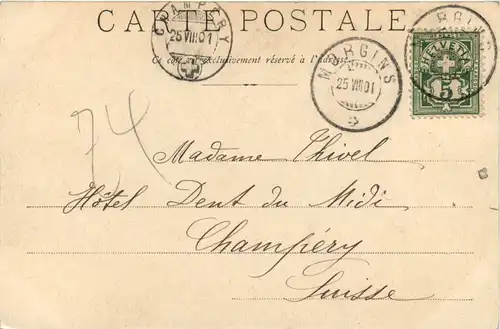 CARTE POSTALE
CHAMPÉRY
25 VIII 01
Ce côté est exclusivement réservé à l'adresse
MORGINS
25 VIII 01
HELVETIA
5
74
Madame Thivel
Hôtel Dent du Midi
Champéry
Suisse